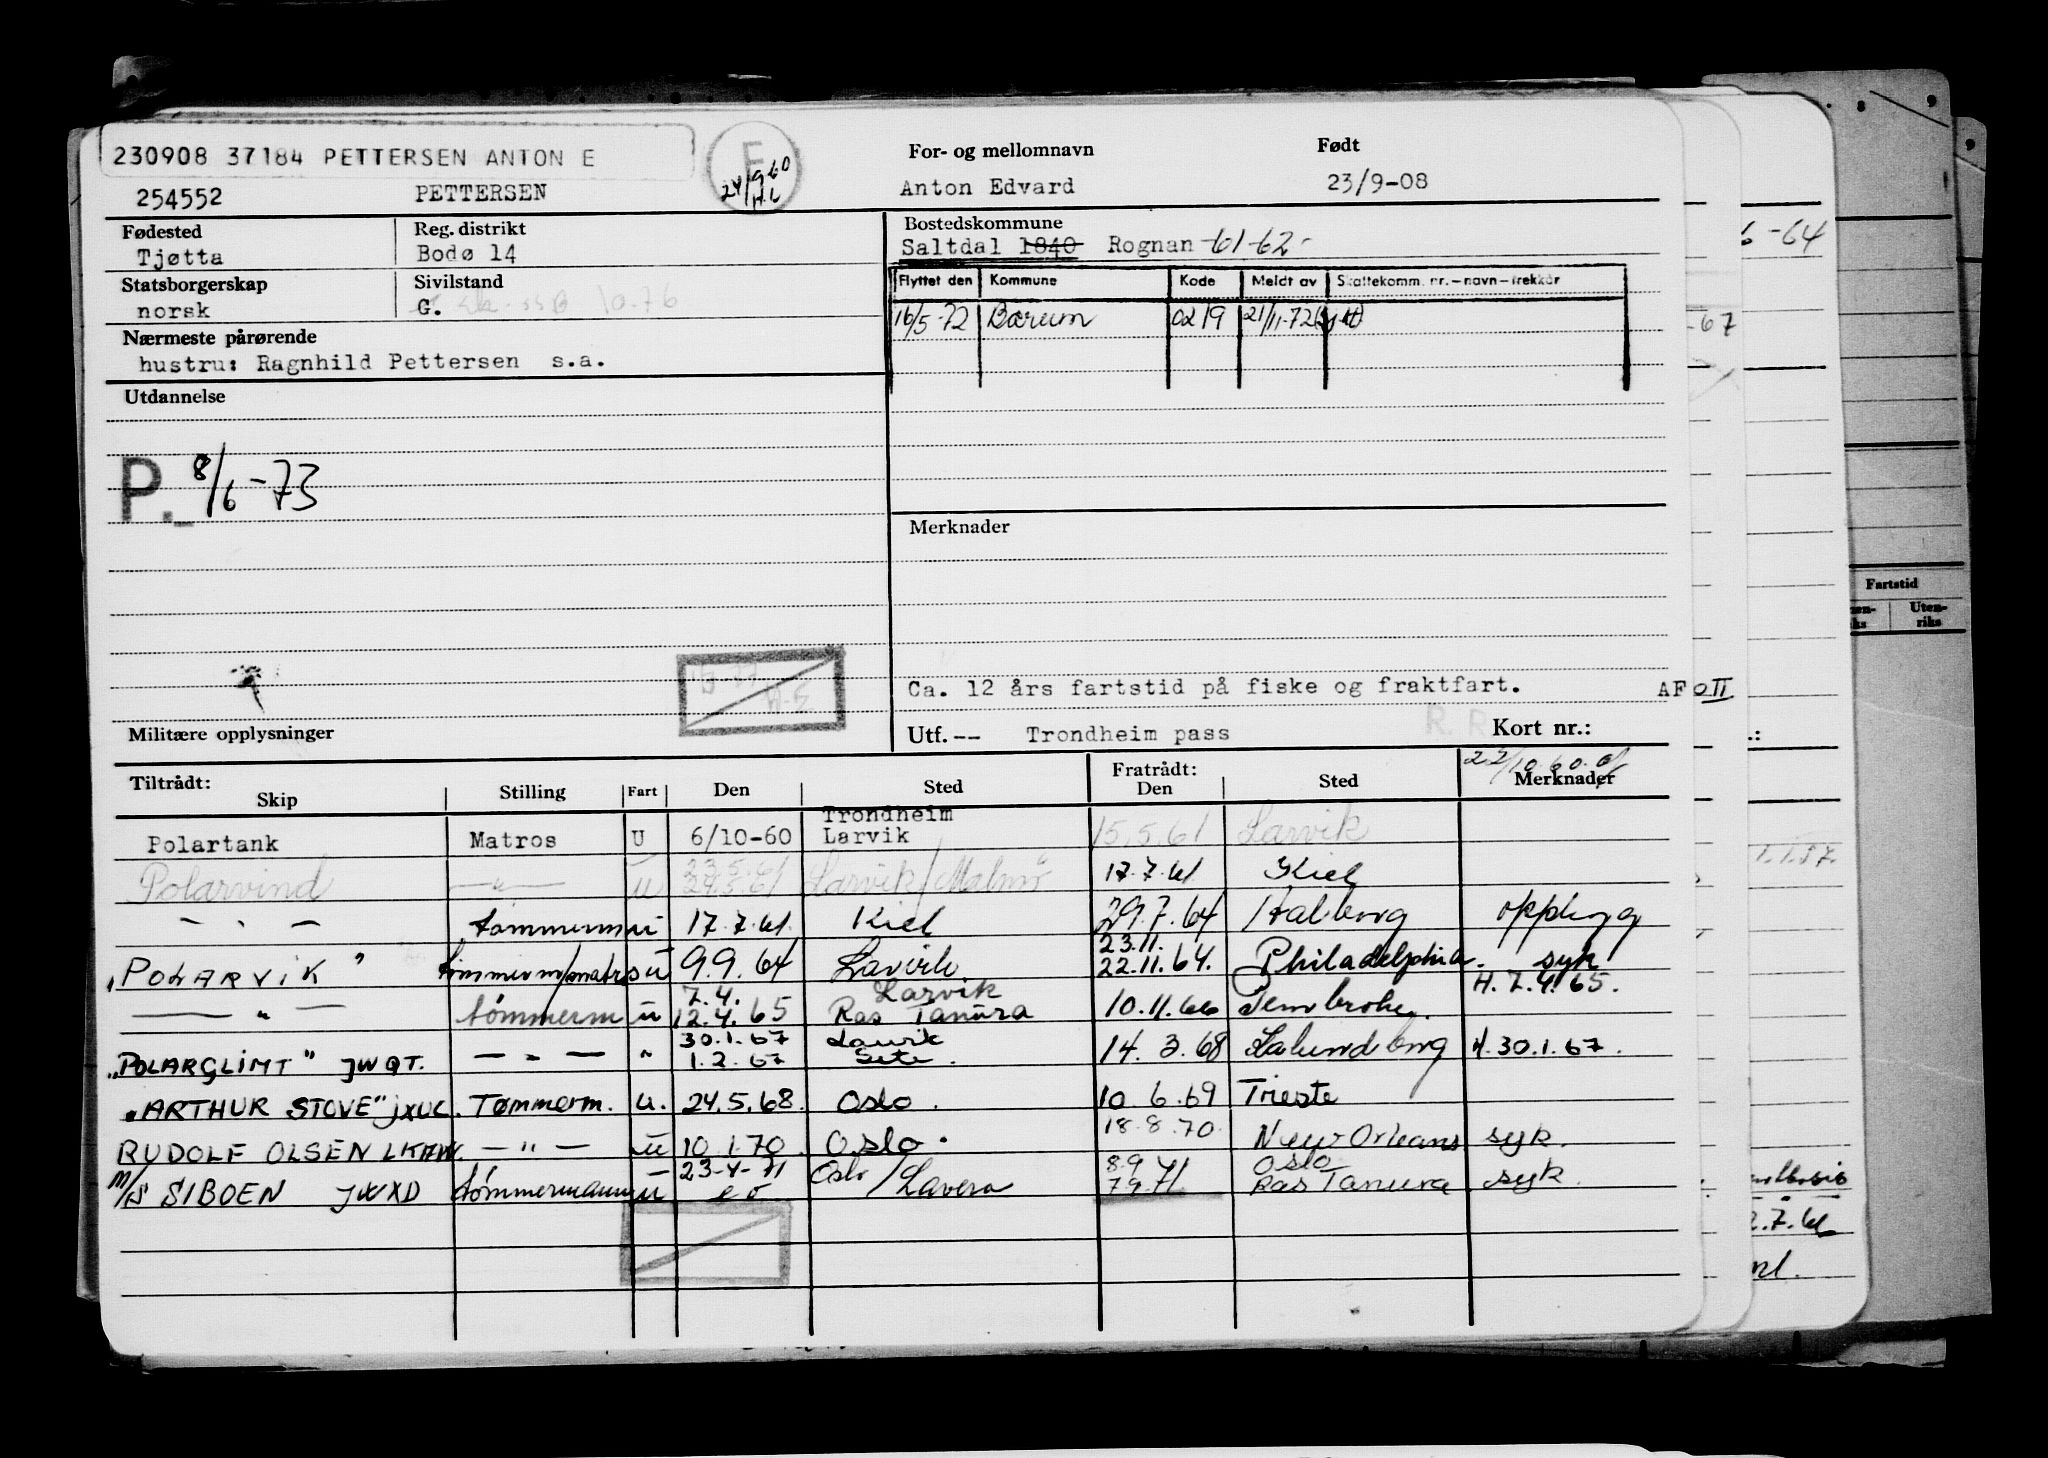 230908 37184 PETTERSEN ANTON E
254552 PETTERSEN
E
24/9 60
H.L
For- og mellomnavn
Anton Edvard
Født
23/9-08
Fødested
Tjøtta
Reg. distrikt
Bodø 14
Bostedskommune
Saltdal 1840 Rognan -61-62-
Statsborgerskap
norsk
Sivilstand
G.
10.76
Flyttet den Kommune Kode Meldt av Skattekomm. nr.–navn–trekkår
16/5-72 Bærum 0219 21/11-72
Nærmeste pårørende
hustru: Ragnhild Pettersen s.a.
Utdannelse
P. 8/6-73
Merknader
Ca. 12 års fartstid på fiske og fraktfart.
AF O II
Militære opplysninger
Utf.-- Trondheim pass
R. R
Kort nr.:
Tiltrådt:
Skip Stilling Fart Den Sted Fratrådt: Den Sted Merknader
Polartank Matros U 6/10-60 Trondheim Larvik 15.5.61 Larvik
Polarvind — " — u 23.5.61 24.5.61 Larvik/Malmö 17.7.61 Kiel
— " — tømmerm u 17.7.61 Kiel 29.7.64 Aalborg opplegg
"POLARVIK" tømmerm/matros u 9.9.64 Larvik 23.11. 22.11.64. Philadelphia. syk
— " — tømmerm u 7.4. 12.4.65 Larvik Ras Tanura 10.11.66 Pembroke. H. 7.4.65.
"POLARGLIMT" JWQT. — " — " 30.1.67 1.2.67 Larvik Sete. 14.3.68 Kalundborg H. 30.1.67.
"ARTHUR STOVE" JXUC. Tømmerm. u. 24.5.68. Oslo. 10.6.69 Trieste
RUDOLF OLSEN — " — u 10.1.70. Oslo. 18.8.70. New Orleans syk.
M/S SIBOEN JWXD tømmermann u 23-4-71 Oslo/Lavera 8.9 7.9.71 Oslo Ras Tanura syk.
6-64
-67
Fartstid
Uten-
riks
1.1.57.
2.7.61